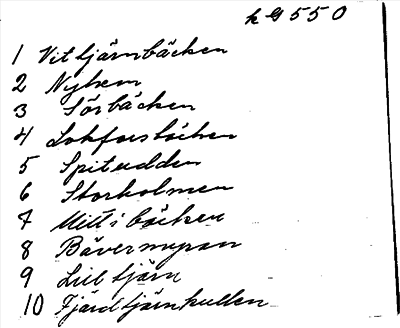 hG 550
1 Vittjärnbäcken
2 Nyhem
3 Sörbäcken
4 Lokforsbäcken
5 Spitudden
6 Storholmen
7 Mitti bäcken
8 Bävermyran
9 Lill tjärn
10 Fjärdtjärnkullen